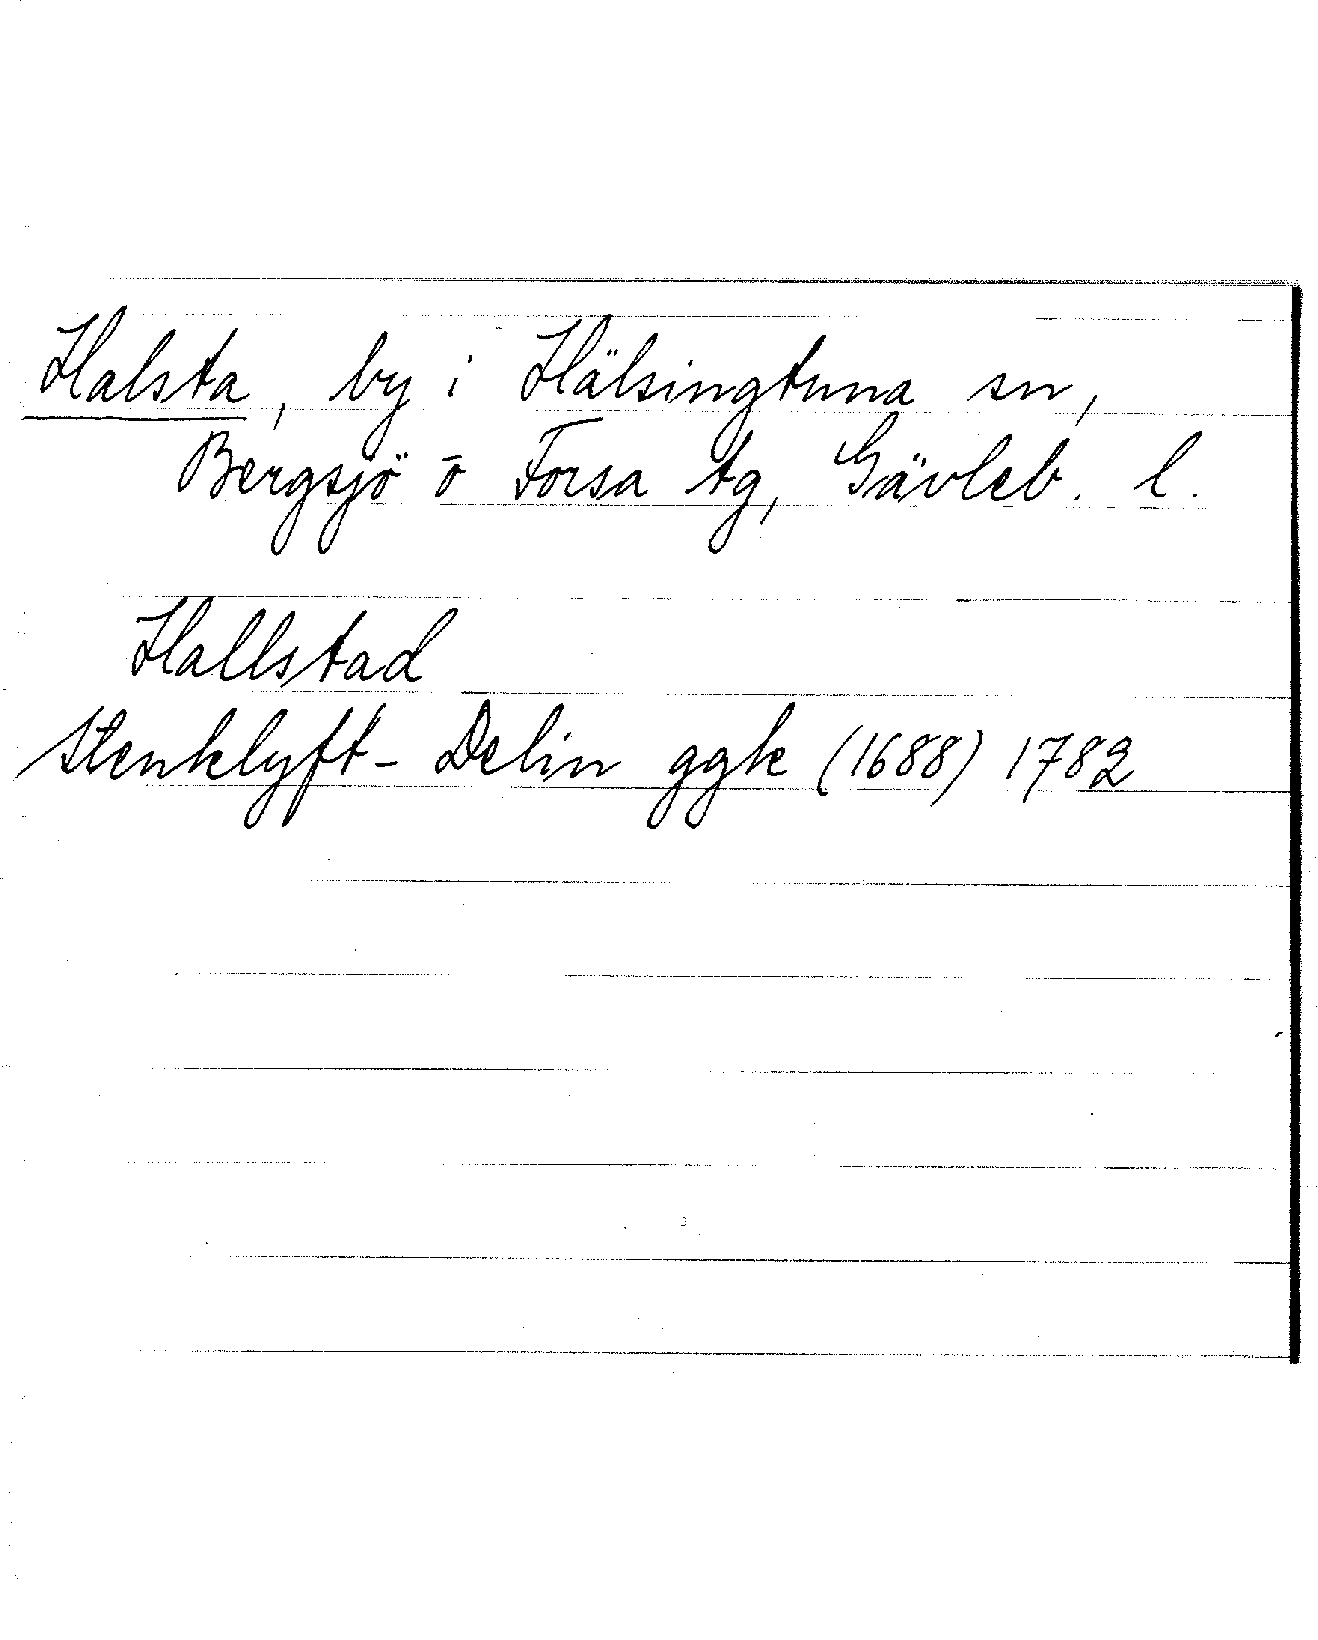 Halsta, by i Hälsingtuna sn,
Bergsjö o Forsa tg, Gävleb. l.
Hallstad
Stenklyft-Delin ggk (1688) 1782